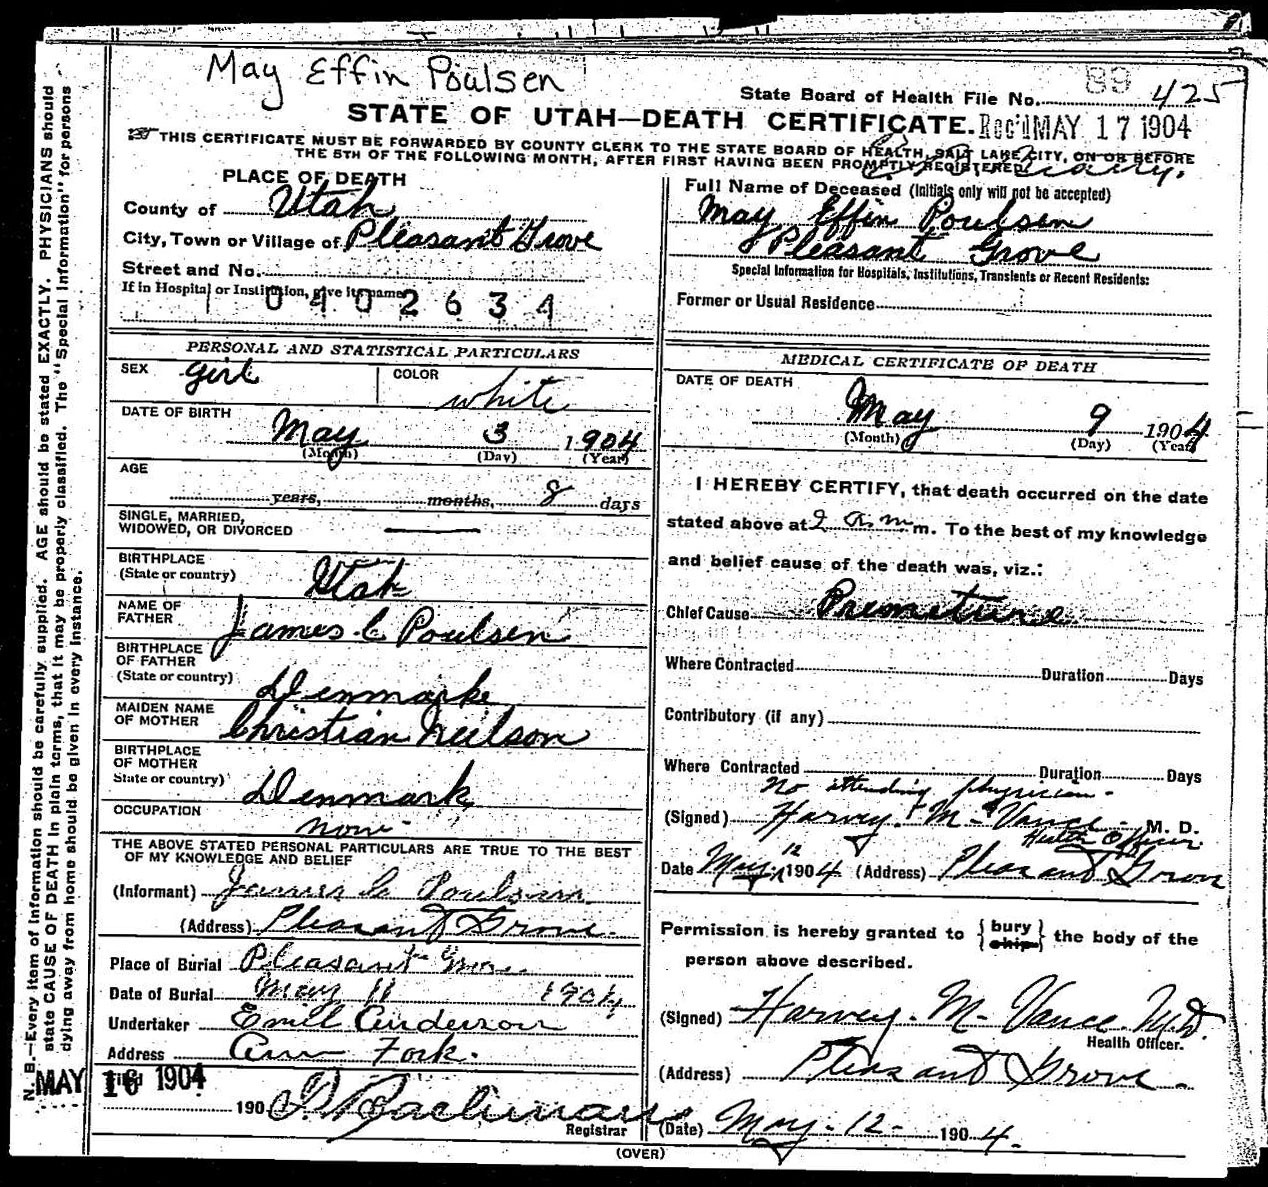 May Effin Poulsen
State Board of Health File No. 89 425
STATE OF UTAH—DEATH CERTIFICATE. Rec'd MAY 17 1904
THIS CERTIFICATE MUST BE FORWARDED BY COUNTY CLERK TO THE STATE BOARD OF HEALTH, SALT LAKE CITY, ON OR BEFORE
THE 5TH OF THE FOLLOWING MONTH, AFTER FIRST HAVING BEEN PROMPTLY REGISTERED
PLACE OF DEATH
County of Utah
City, Town or Village of Pleasant Grove
Street and No.
If in Hospital or Institution, give its name
0402634
Full Name of Deceased (Initials only will not be accepted)
May Effin Poulsen
Pleasant Grove
Special Information for Hospitals, Institutions, Transients or Recent Residents:
Former or Usual Residence
PERSONAL AND STATISTICAL PARTICULARS
SEX girl COLOR white
DATE OF BIRTH
May 3 1904
(Month) (Day) (Year)
AGE
years, months, 8 days
SINGLE, MARRIED,
WIDOWED, OR DIVORCED
BIRTHPLACE
(State or country) Utah
NAME OF
FATHER James C Poulsen
BIRTHPLACE
OF FATHER
(State or country) Denmark
MAIDEN NAME
OF MOTHER Christian Neilson
BIRTHPLACE
OF MOTHER
State or country) Denmark
OCCUPATION
non
THE ABOVE STATED PERSONAL PARTICULARS ARE TRUE TO THE BEST
OF MY KNOWLEDGE AND BELIEF
(Informant) James C Poulsen
(Address) Pleasant Grove
Place of Burial Pleasant Grove
Date of Burial May 11 1904
Undertaker Emil Anderson
Address Am Fork.
Filed MAY 16 1904
190
Registrar
MEDICAL CERTIFICATE OF DEATH
DATE OF DEATH
May 9 1904
(Month) (Day) (Year)
I HEREBY CERTIFY, that death occurred on the date
stated above at 2 a.m m. To the best of my knowledge
and belief cause of the death was, viz.:
Chief Cause Premature
Where Contracted Duration Days
Contributory (if any)
Where Contracted Duration Days
No attending physician -
(Signed) Harvey M. Vance M. D.
Health Officer
Date May 12 1904 (Address) Pleasant Grove
Permission is hereby granted to {bury ship} the body of the
person above described.
(Signed) Harvey. M. Vance. M.D.
Health Officer.
(Address) Pleasant Grove.
(Date) May. 12- 1904.
(OVER)
N. B.—Every item of information should be carefully supplied. AGE should be stated EXACTLY. PHYSICIANS should
state CAUSE OF DEATH in plain terms, that it may be properly classified. The "Special Information" for persons
dying away from home should be given in every instance.